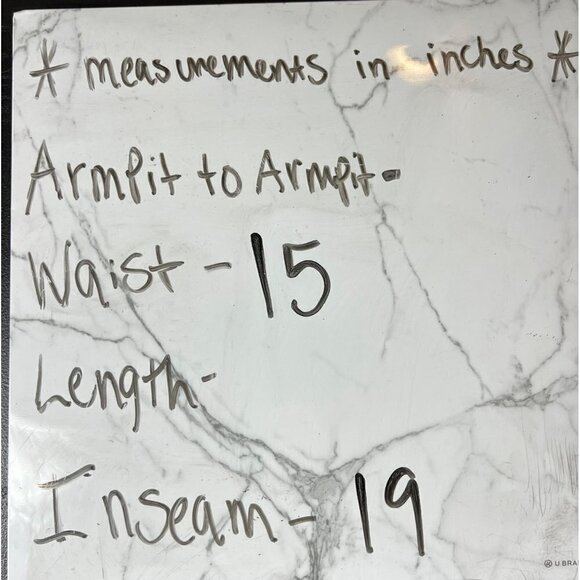 * measurements in inches *
Armpit to Armpit-
Waist - 15
Length-
Inseam - 19
U BRA